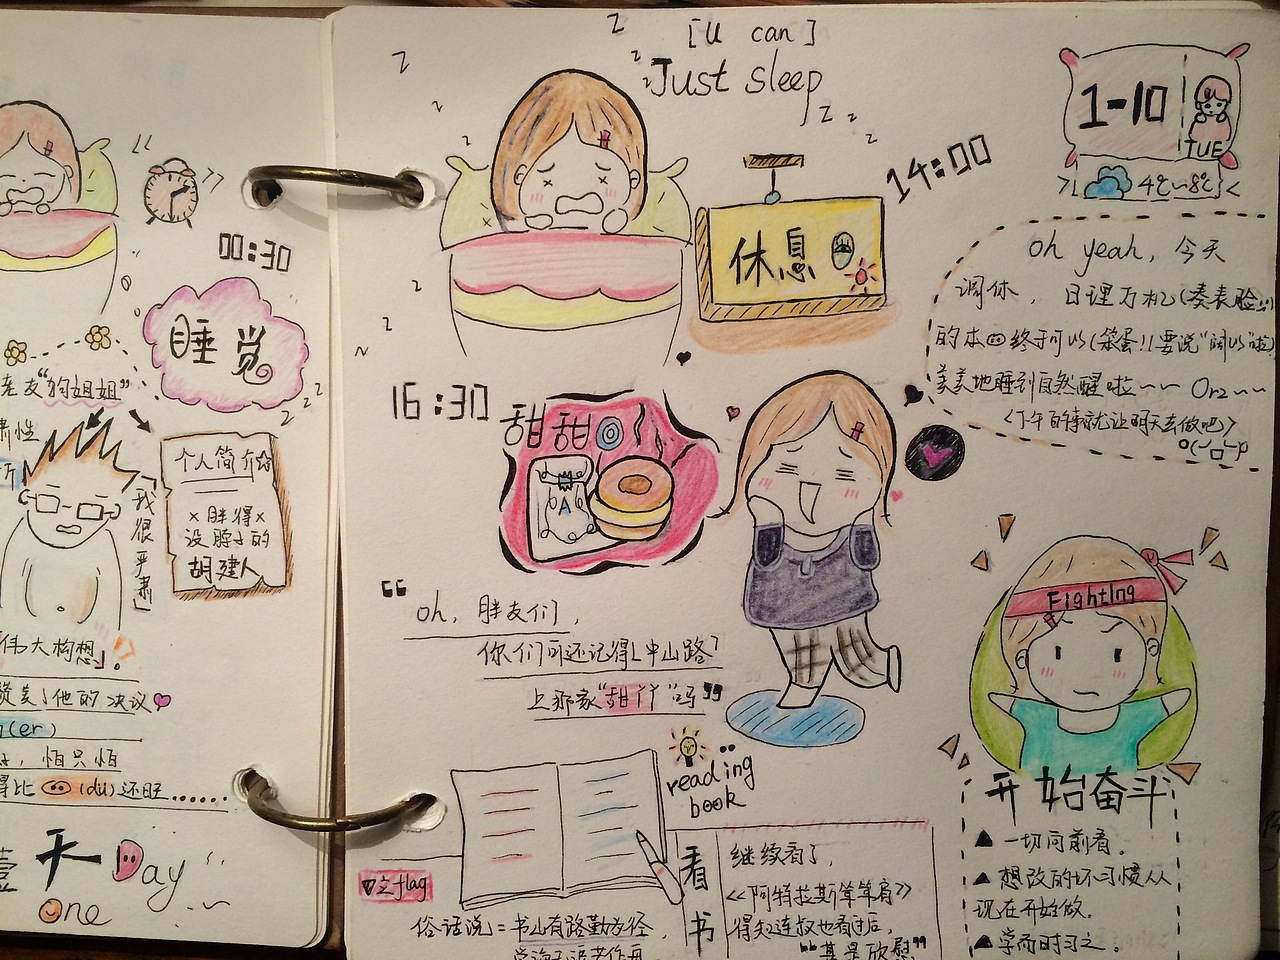 00:30
睡觉
友“的姐姐”
个人简介
×胖得×
没脖子的
胡建人
「我很严肃」
伟大构想」。
赞美了他的决议
(er)
，怕只怕
得比 (du)还旺……
壹天 Day
one
[u can]
Just sleep
休息
14:00
1-10
TUE
4℃~8℃
oh yeah, 今天
调休，日理万机(凑表脸!!)
的本 终于可以(笨蛋!!要说“阔以”啦)
美美地睡到自然醒啦~~ Orz~~
<下午的事就让明天去做吧>
16:30
甜甜
A
“oh, 胖友们,
你们可还记得中山路
上那家“甜丫丫”吗”
reading
book
看书
继续看了,
<<阿特拉斯耸耸肩>>
得知连叔也看过后,
“甚是欣慰”
之flag
俗话说：书山有路勤为径，
Fighting
开始奋斗
▲ 一切向前看。
▲ 想改的坏习惯从
现在开始做.
▲ 学而时习之。